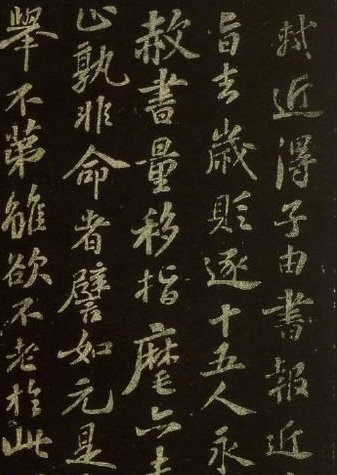 軾近得子由書報近
旨去歲貶逐十五人永
赦書量移指麾亦
止孰非命者譬如元是
舉不第雖欲不老於此